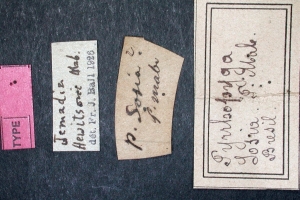 TYPE
Jemadia
Hewitsonii Mab.
det. Fr. J. Ball 1926
P. Sosia ♀
P. mab.
Pyrrhopyga
Sosia
P. Mab.
Brésil